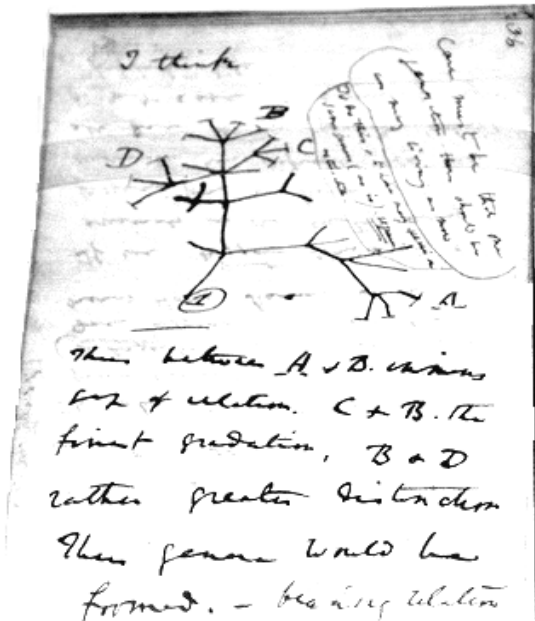 I think
36
Case must be that one
generation then should be
as many living as now.
To do this & to have many species in
same genus (as is) requires
extinction.
B
C
D
A
1
Thus between A & B. immens
gap of relation. C & B. the
finest gradation, B & D
rather greater distinction
Thus genera would be
formed. — bearing relation